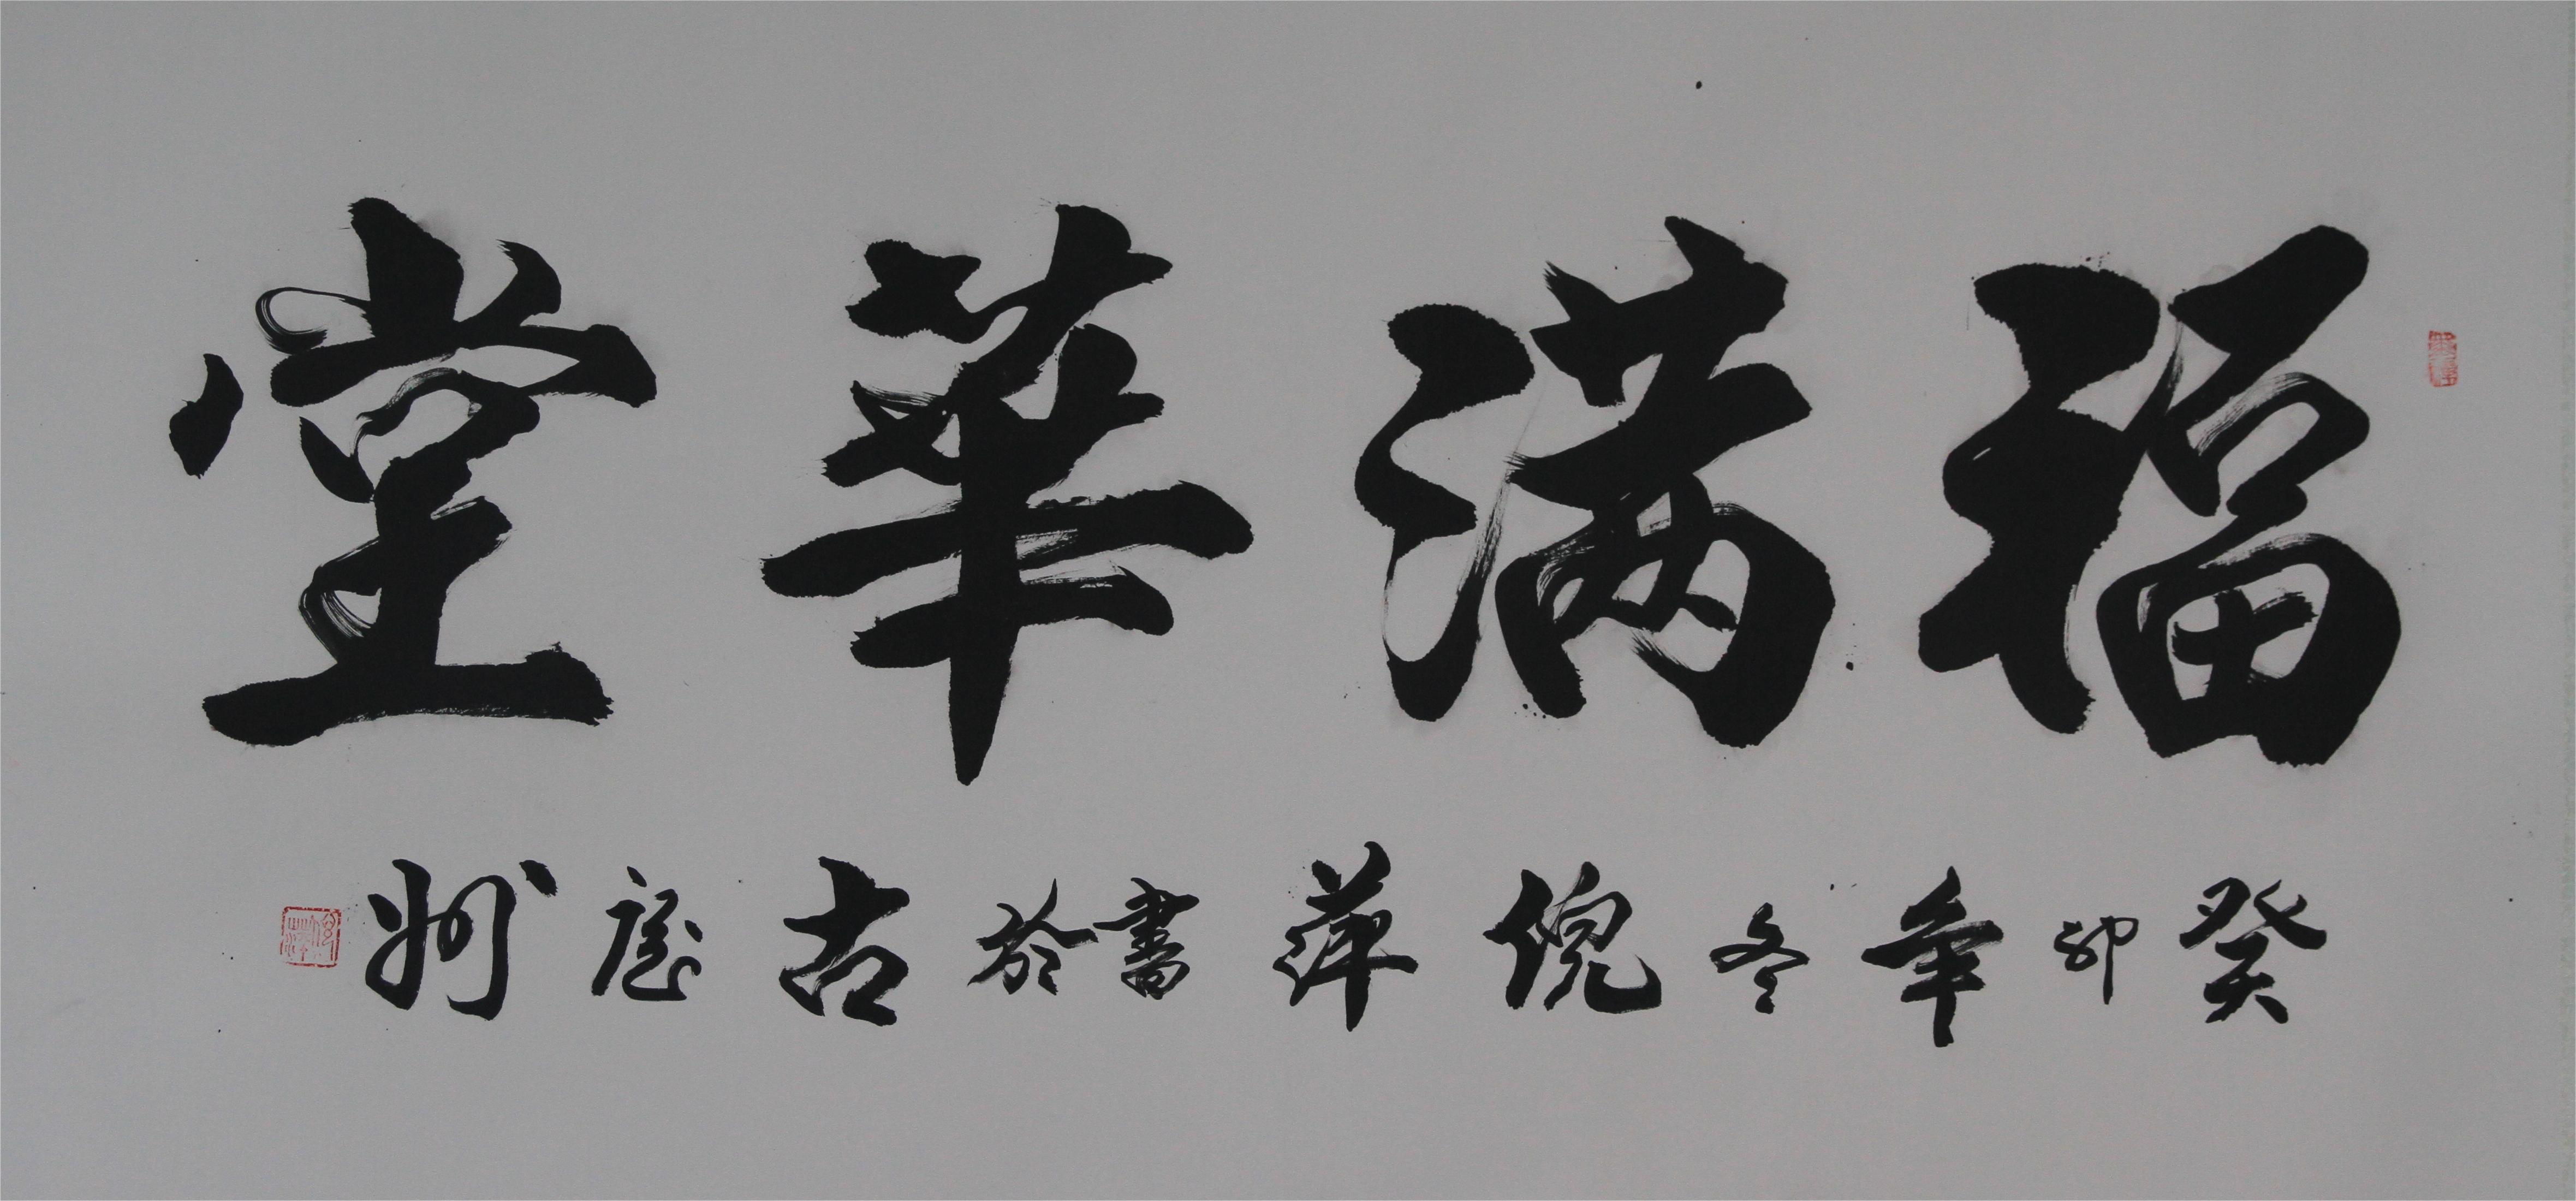 福满華堂
癸卯年冬倪萍書於古莀州